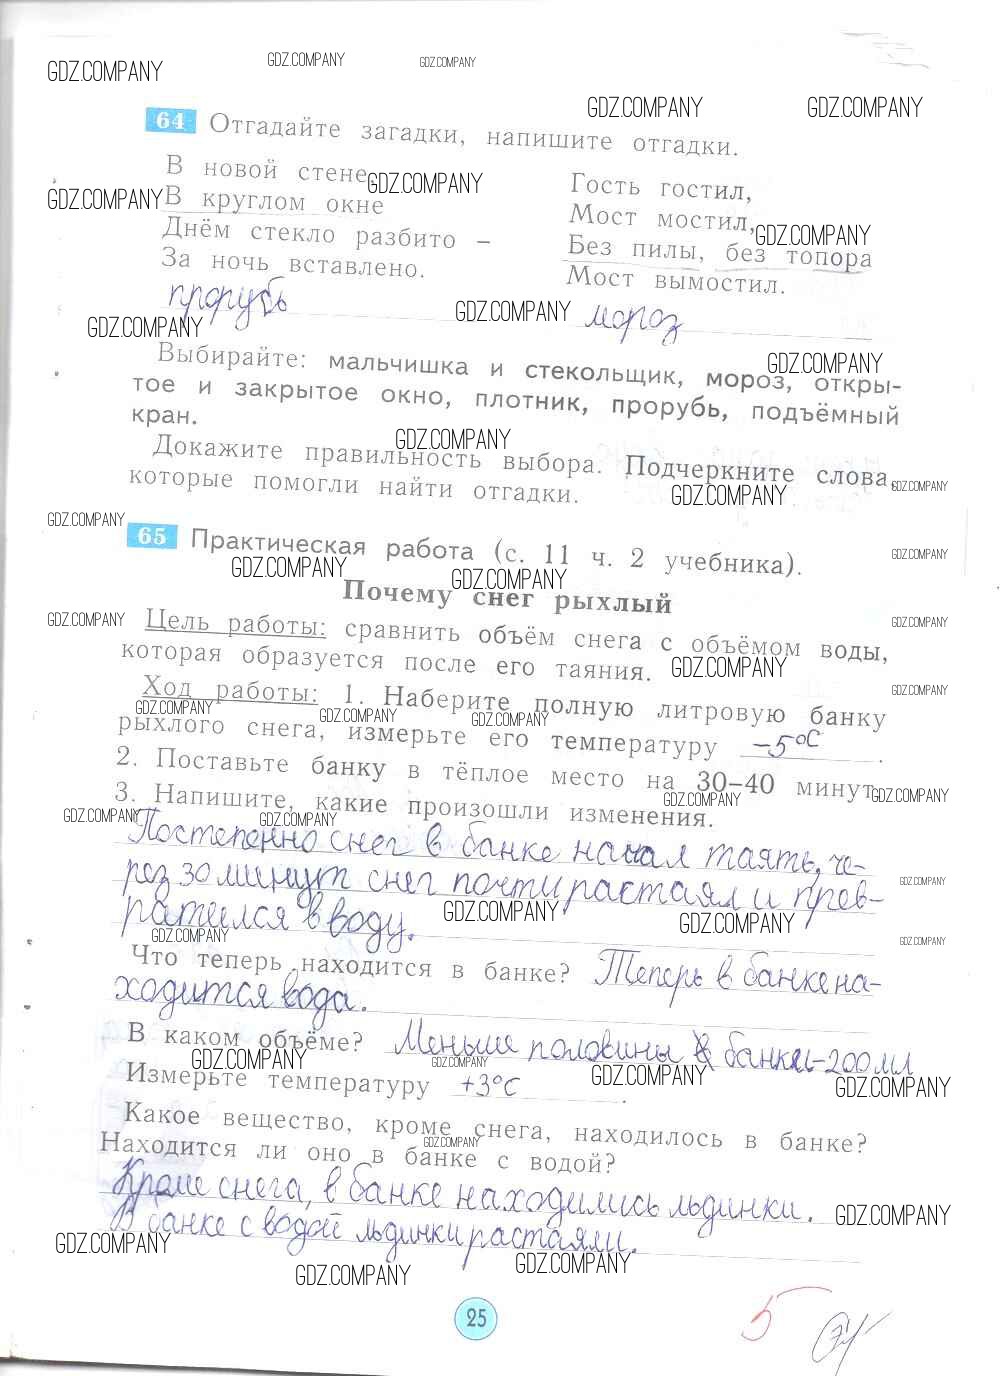 GDZ.COMPANY GDZ.COMPANY GDZ.COMPANY
GDZ.COMPANY GDZ.COMPANY
64 Отгадайте загадки, напишите отгадки.
В новой стене,
GDZ.COMPANY
GDZ.COMPANY В круглом окне
Днём стекло разбито –
За ночь вставлено.
прорубь
Гость гостил,
Мост мостил,
GDZ.COMPANY
Без пилы, без топора
Мост вымостил.
GDZ.COMPANY мороз
GDZ.COMPANY
GDZ.COMPANY
Выбирайте: мальчишка и стекольщик, мороз, откры-
тое и закрытое окно, плотник, прорубь, подъёмный
кран.
GDZ.COMPANY
Докажите правильность выбора. Подчеркните слова,
которые помогли найти отгадки.
GDZ.COMPANY GDZ.COMPANY
GDZ.COMPANY
65 Практическая работа (с. 11 ч. 2 учебника).
GDZ.COMPANY GDZ.COMPANY GDZ.COMPANY
Почему снег рыхлый
GDZ.COMPANY Цель работы: сравнить объём снега с объёмом воды, GDZ.COMPANY
которая образуется после его таяния.
GDZ.COMPANY GDZ.COMPANY
Ход работы: 1. Наберите полную литровую банку
GDZ.COMPANY GDZ.COMPANY GDZ.COMPANY
рыхлого снега, измерьте его температуру –5°С.
2. Поставьте банку в тёплое место на 30–40 минут.
GDZ.COMPANY GDZ.COMPANY
3. Напишите, какие произошли изменения.
GDZ.COMPANY GDZ.COMPANY
Постепенно снег в банке начал таять, че-
рез 30 минут снег почти растаял и прев-
GDZ.COMPANY
ратился в воду.
GDZ.COMPANY GDZ.COMPANY
GDZ.COMPANY GDZ.COMPANY
Что теперь находится в банке? Теперь в банке на-
ходится вода.
В каком объёме? Меньше половины банки-200 мл
GDZ.COMPANY GDZ.COMPANY GDZ.COMPANY GDZ.COMPANY
Измерьте температуру +3°С.
Какое вещество, кроме снега, находилось в банке?
GDZ.COMPANY
Находится ли оно в банке с водой?
Кроме снега, в банке находились льдинки.
GDZ.COMPANY
В банке с водой льдинки растаяли.
GDZ.COMPANY GDZ.COMPANY GDZ.COMPANY
25
5